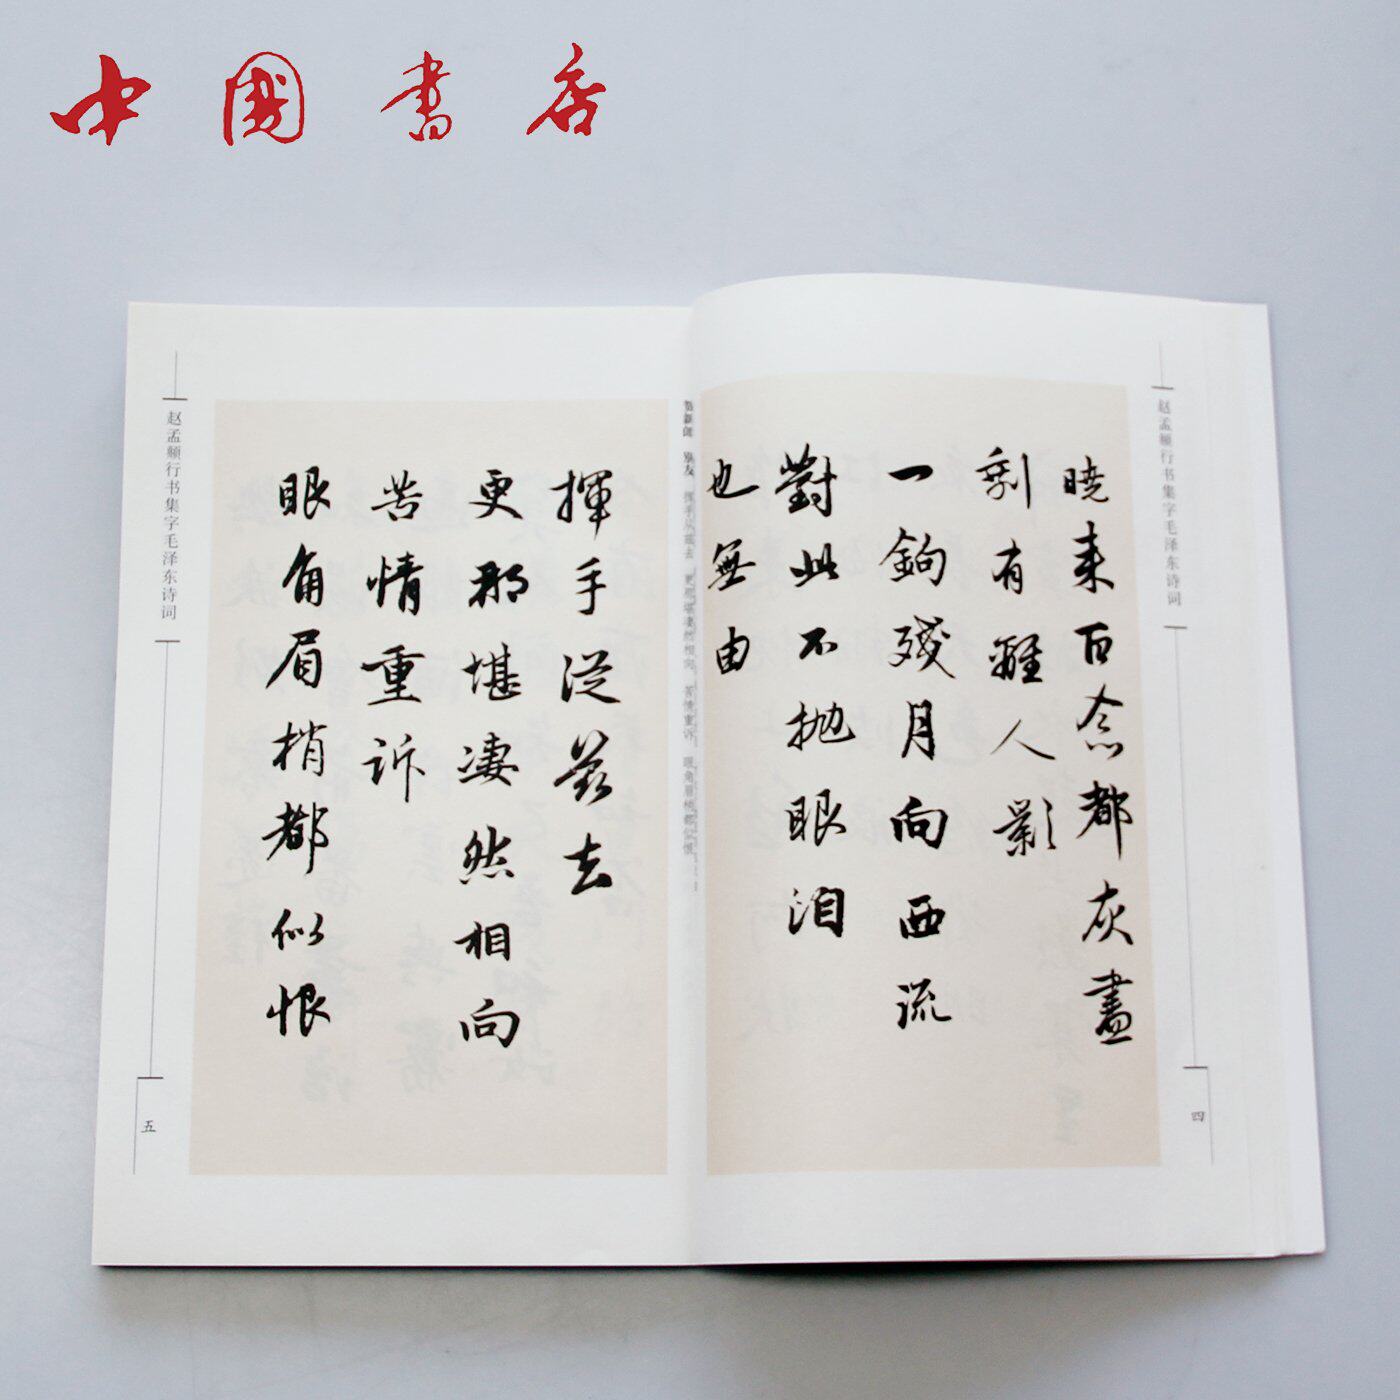 中国书店
赵孟頫行书集字毛泽东诗词
四
晓来百念都灰盡
剩有離人影
一鉤殘月向西流
對此不抛眼泪
也無由
贺新郎 别友 挥手从兹去 更那堪凄然相向 苦情重诉 眼角眉梢都似恨
揮手從兹去
更那堪凄然相向
苦情重诉
眼角眉梢都似恨
赵孟頫行书集字毛泽东诗词
五